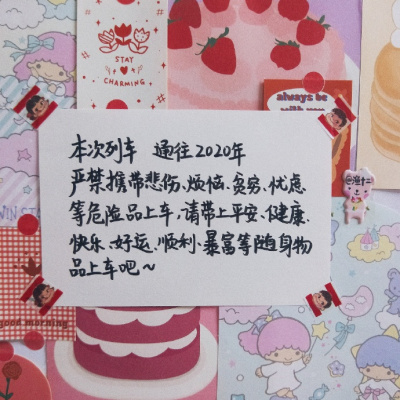 STAY
CHARMING
always be
with you
本次列车 通往2020年
严禁携带悲伤、烦恼、贫穷、忧虑
等危险品上车,请带上平安、健康、
快乐、好运、顺利、暴富等随身物
品上车吧~
good morning